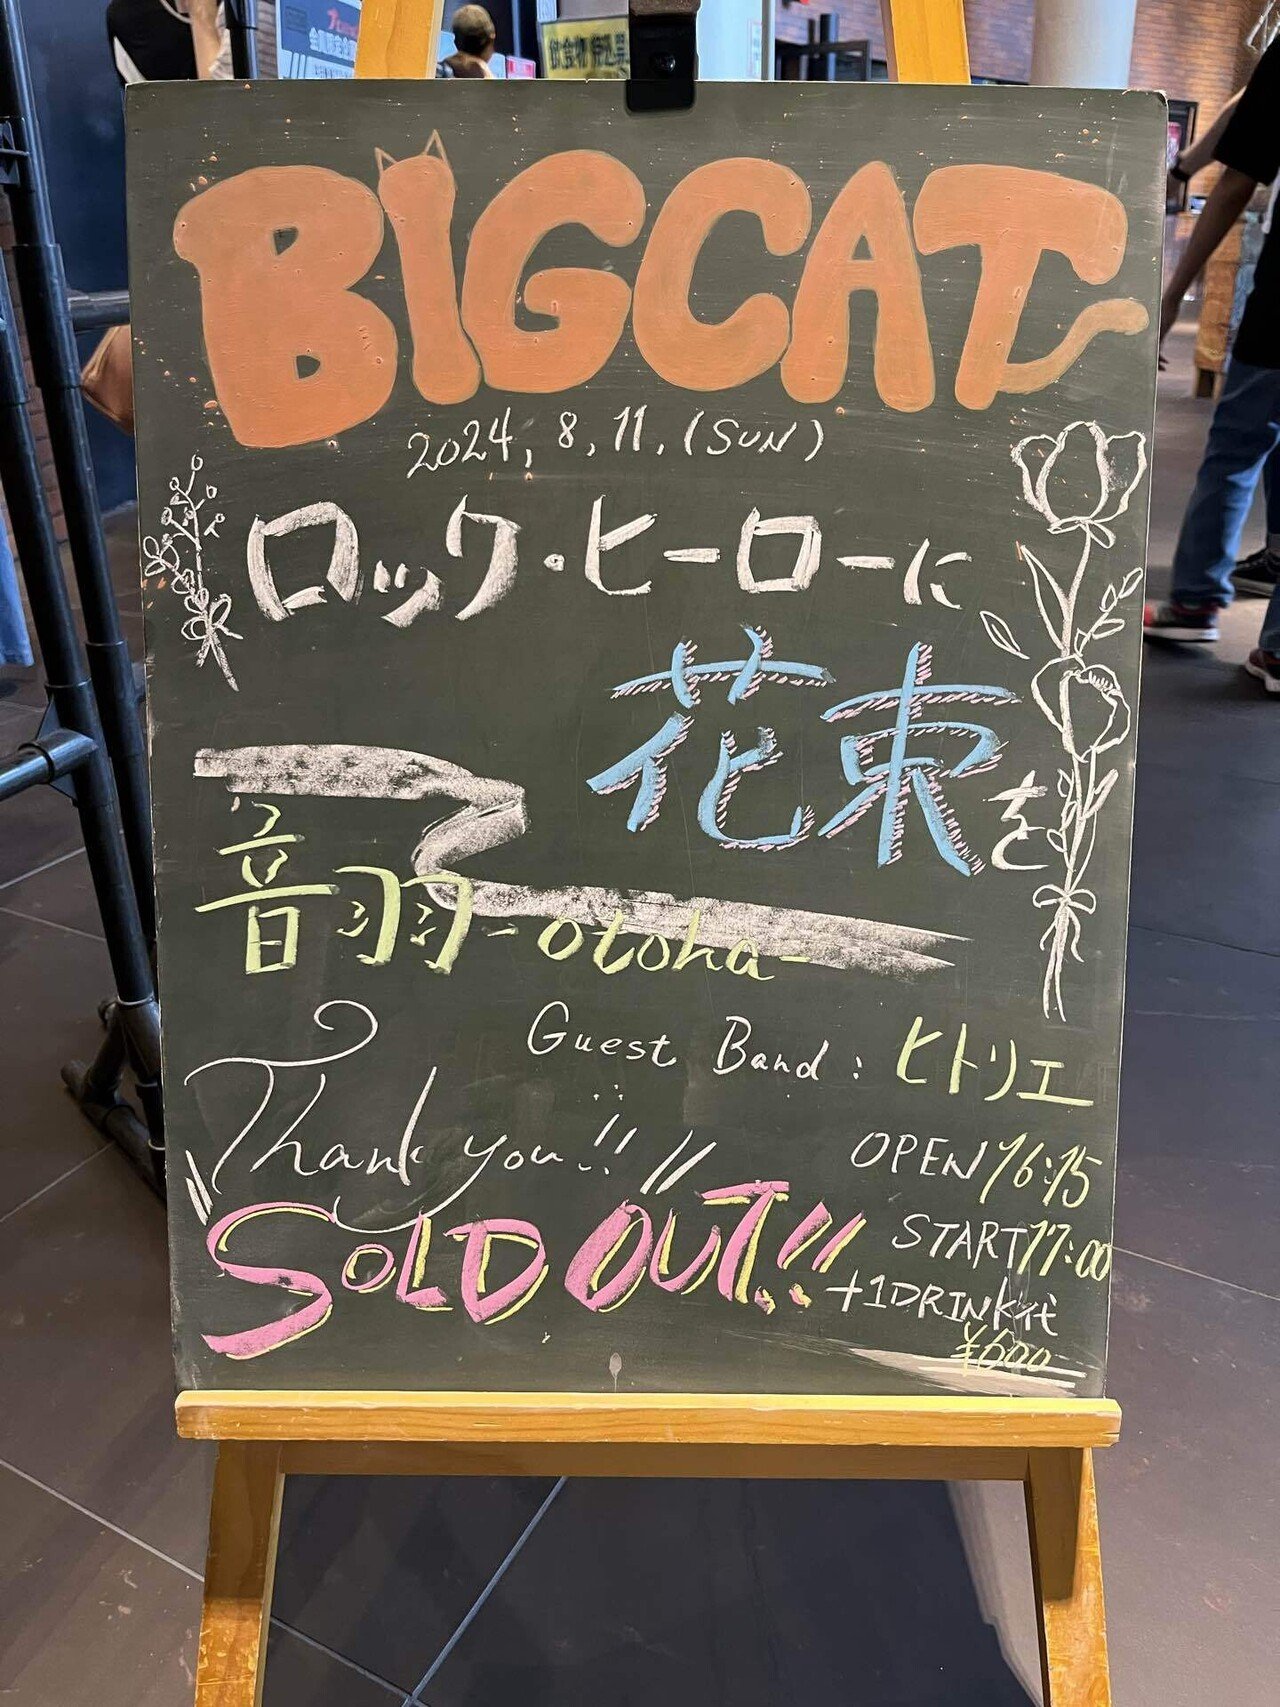 飲食物 持込禁
BIGCAT
2024, 8, 11, (SUN)
ロック・ヒーローに
花束を
音羽-otoha-
Guest Band : ヒトリエ
Thank you!!
OPEN 16:15
SOLD OUT!!
START 17:00
+1DRINK代
¥600